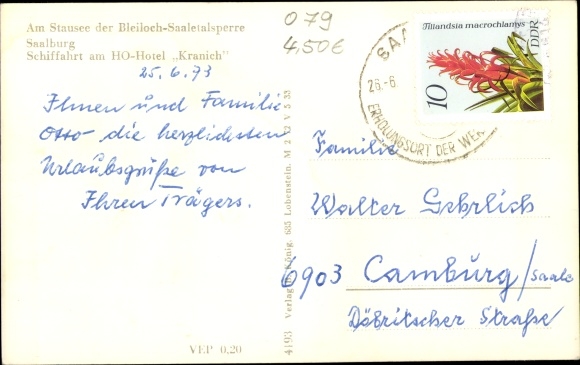 Am Stausee der Bleiloch-Saaletalsperre
Saalburg
Schiffahrt am HO-Hotel „Kranich"
079
4,50€
25.6.73
Ihnen und Familie
Otto die herzlichsten
Urlaubsgrüße von
Ihren Trägers.
VEP 0,20
4193 Verlag König, 685 Lobenstein. M 2 V 5 33
Tillandsia macrochlamys
DDR
10
SAA
26.-6.
ERHOLUNGSORT DER WER
Familie
Walter Gehrlich
6903 Camburg/Saale
Döbritscher Straße